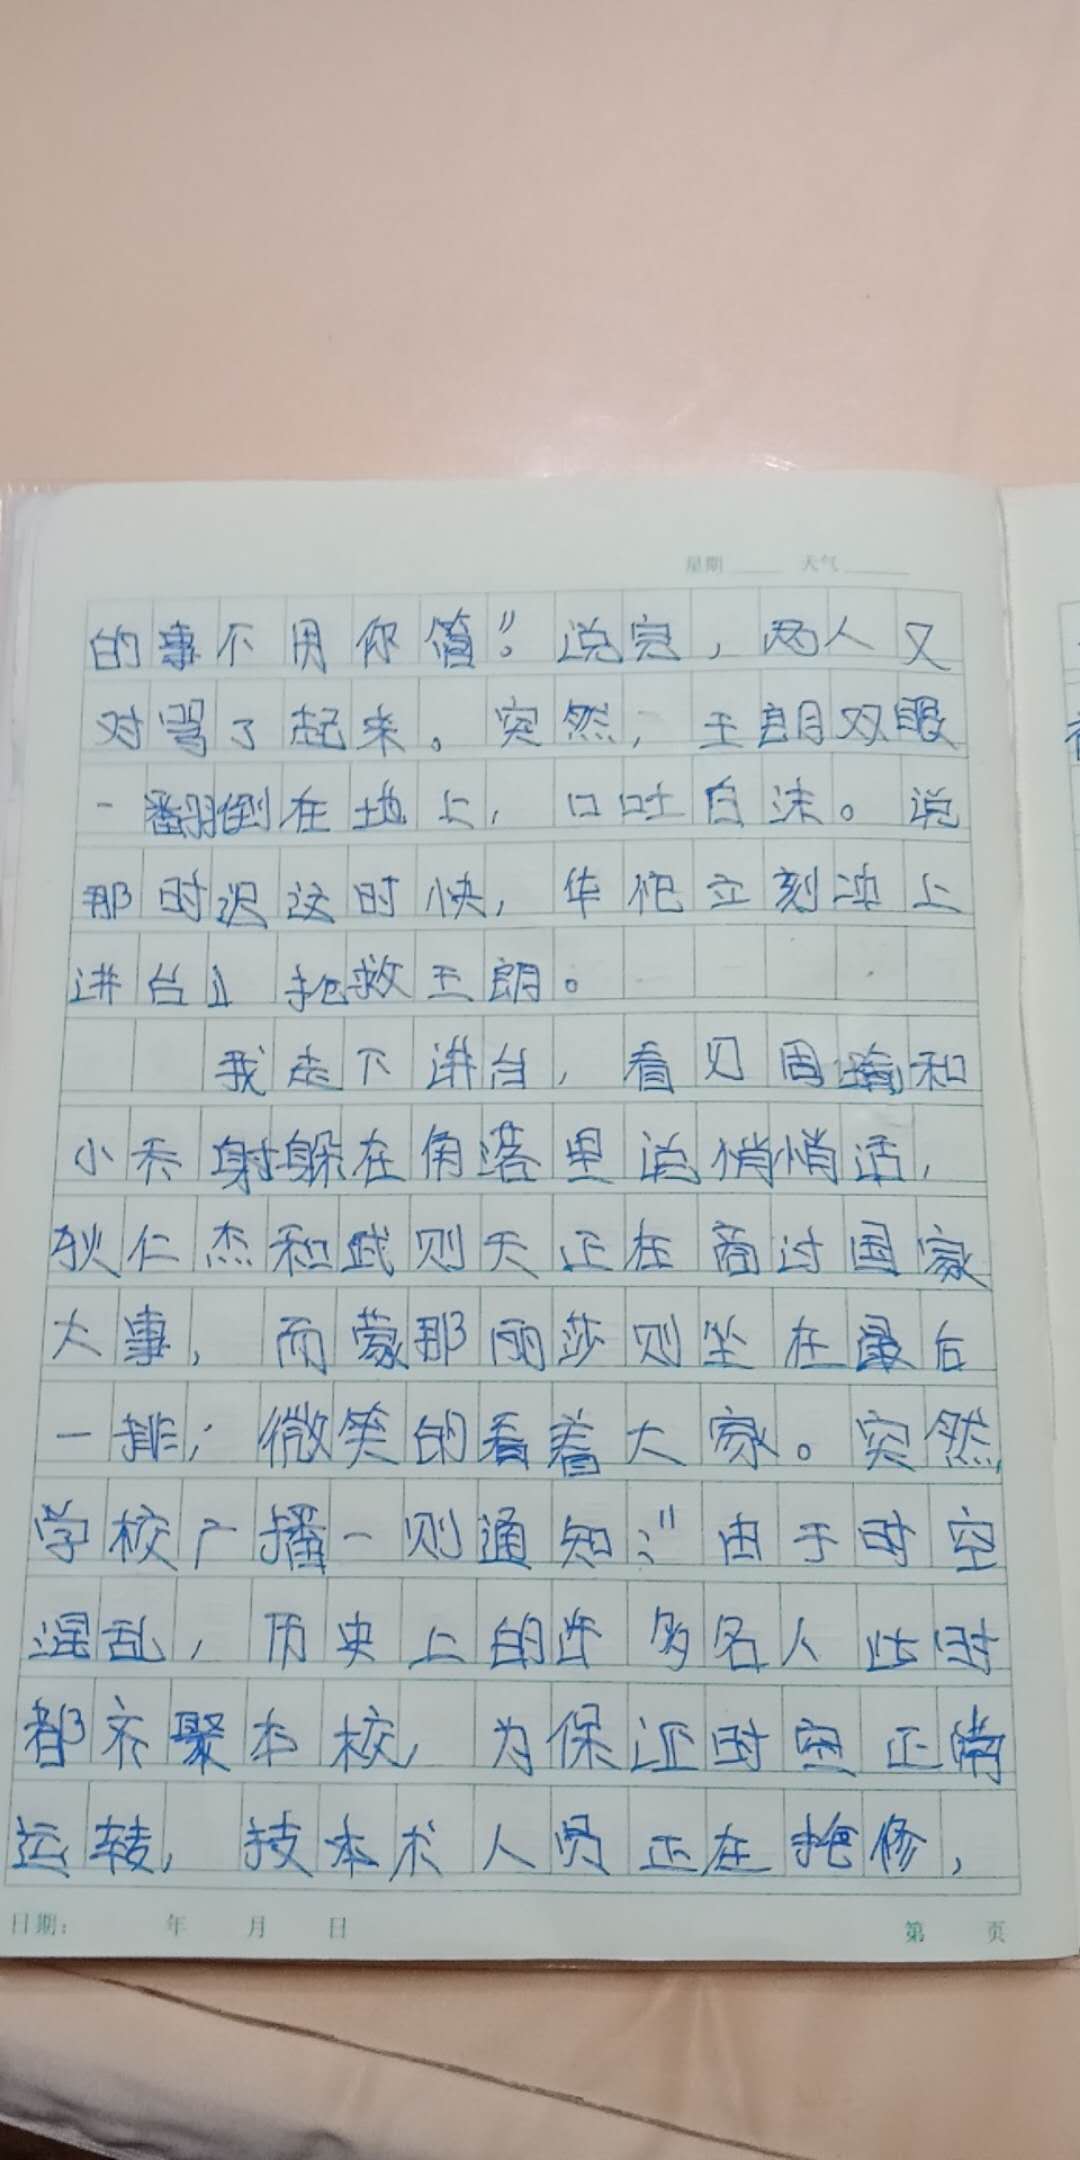 星期 天气
的事不用你管”。说完，两人又
对骂了起来。突然，王朗双眼
一翻倒在地上，口吐白沫。说
那时迟这时快，华佗立刻冲上
讲台，抢救王朗。
我走下讲台，看见周瑜和
小乔躲在角落里说悄悄话，
狄仁杰和武则天正在商讨国家
大事，而蒙那丽莎则坐在最后
一排，微笑的看着大家。突然，
学校广播一则通知：“由于时空
混乱，历史上的许多名人此时
都齐聚本校，为保证时空正常
运转，技本术人员正在抢修，
日期： 年 月 日 第 页